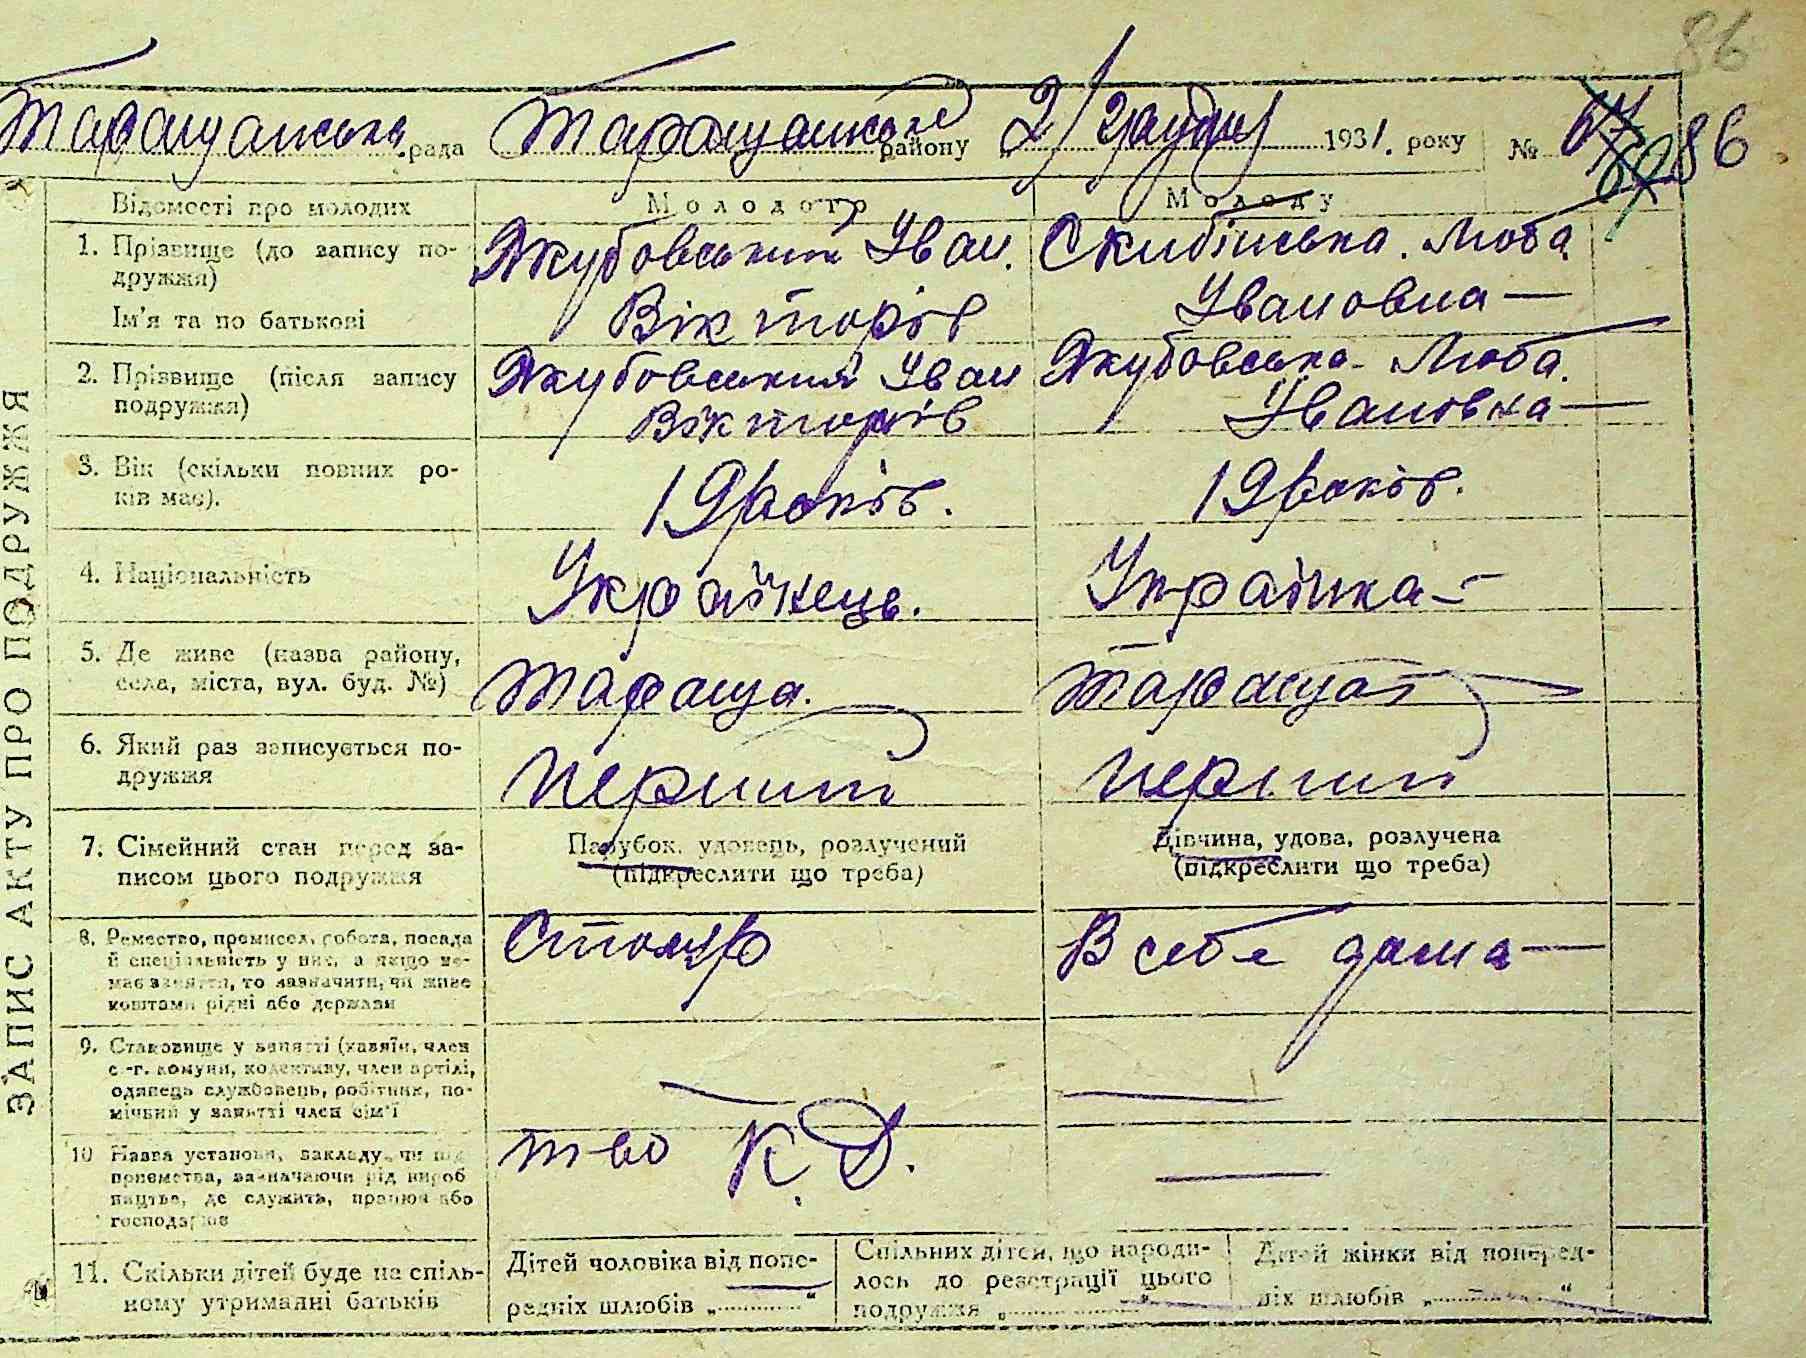 86
Таращанська рада Таращанське району „2/ грудня 1931. року № 86
ЗАПИС АКТУ ПРО ПОДРУЖЖЯ
Відомості про молодих
Молодого
Молоду
1. Прізвище (до запису по-
дружжя)
Ім'я та по батькові
Якубовський Іван.
Вікторів
Скибінська. Люба
Івановна —
2. Прізвище (після запису
подружжя)
Якубовський Іван
Вікторів
Якубовська - Люба.
Івановна —
3. Вік (скільки повних ро-
ків має).
19 років.
19 років.
4. Національність
Українець.
Українка —
5. Де живе (назва району,
села, міста, вул. буд. №)
Тараща.
Тараща
6. Який раз записується по-
дружжя
Перший
Перший
7. Сімейний стан перед за-
писом цього подружжя
Парубок, удовець, розлучений
(підкреслити що треба)
Дівчина, удова, розлучена
(підкреслити що треба)
8. Ремество, промисел, робота, посада
й спеціальність у них, а якщо не-
має заняття, то зазначити, чи живе
коштами рідні або держави
Столяр
В себе дома —
9. Становище у занятті (хазяїн, член
с.-г. комуни, колективу, член артілі,
одинець службовець, робітник, по-
мічний у занятті член сім'ї
—
—
10 Назва установи, закладу чи під
приємства, зазначаючи рід вироб
ництва, де служить, працює або
господарює
т-во К. Д.
—
11. Скільки дітей буде на спіль-
ному утриманні батьків
Дітей чоловіка від попе-
редніх шлюбів „ — “
Спільних дітей, що народи-
лось до реєстрації цього
подружжя „ — “
Дітей жінки від поперед-
ніх шлюбів „ — “